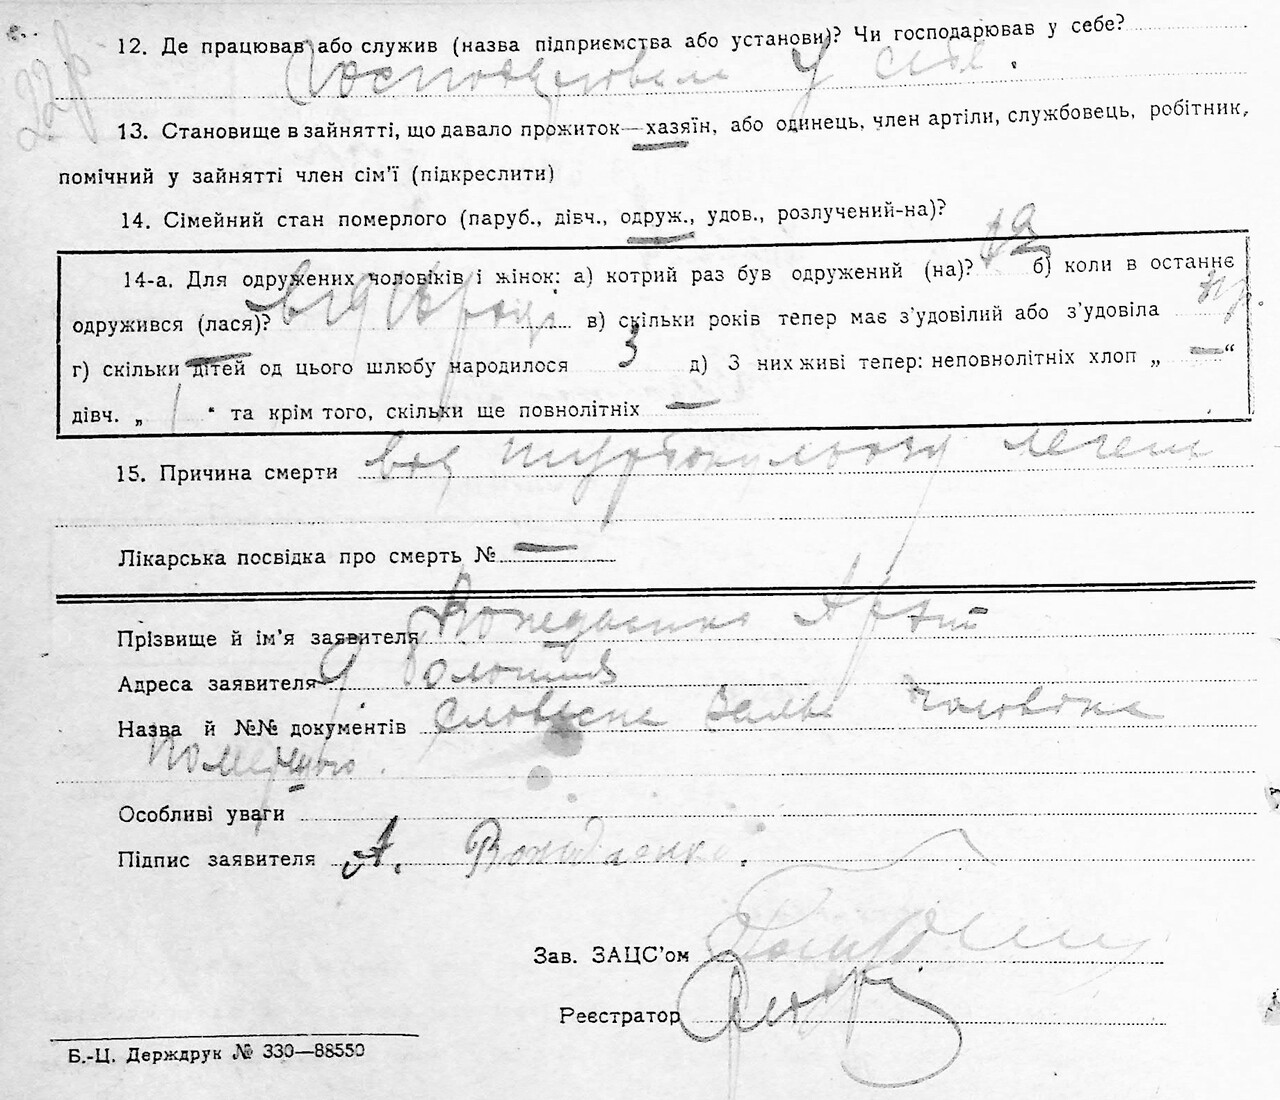 12. Де працював або служив (назва підприємства або установи)? Чи господарював у себе?
Господарювала у себе.
13. Становище в зайнятті, що давало прожиток—хазяїн, або одинець, член артіли, службовець, робітник,
помічний у зайнятті член сім'ї (підкреслити)
14. Сімейний стан померлого (паруб., дівч., одруж., удов., розлучений-на)?
14-а. Для одружених чоловіків і жінок: а) котрий раз був одружений (на)? б) коли в останнє
одружився (лася)? в) скільки років тепер має з'удовілий або з'удовіла
г) скільки дітей од цього шлюбу народилося 3 д) З них живі тепер: неповнолітніх хлоп „ — “
дівч. „ 1 “ та крім того, скільки ще повнолітніх —
15. Причина смерти від туберкульозу легень
Лікарська посвідка про смерть № —
Прізвище й ім'я заявителя
Адреса заявителя
Назва й №№ документів словесна заява чоловіка
помершого.
Особливі уваги
Підпис заявителя А.
Зав. ЗАЦС'ом
Реєстратор
Б.-Ц. Держдрук № 330—88550